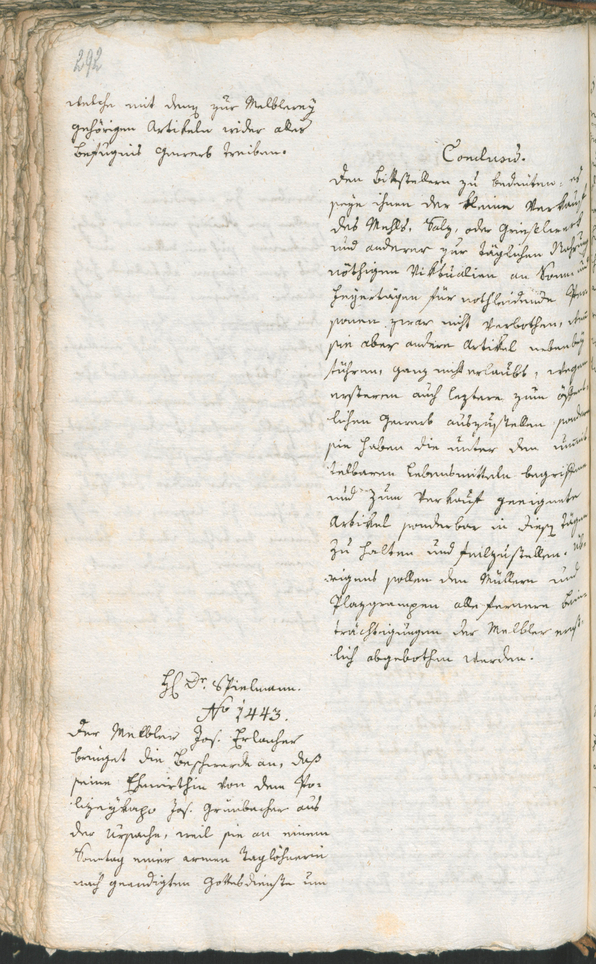 292
welche mit denen zur Melblerey
gehörigen Artikeln wider aller
Befugnis Gewerb treiben.
Conclusum.
Den Bittstellern zu bedeuten: es
seye ihnen der kleine Verkauf
des Mehls, Salz, oder Grieslwerk
und anderer zur täglichen Nahrung
nöthigen Viktualien an Sonn und
Feyertägen für nothleidende Per
sonen zwar nicht verbothen, wenn
sie aber andere Artikel nebenbey
führen, ganz nicht erlaubt, wegen
ersteren auch leztere zum öffent
lichen Gewerb auszustellen sondern
sie haben die unter den unmit
telbaren Lebensmitteln begriffene
und zum Verkauf geeignete
Artikel sonderbar in diesen Tägen
zu halten und feilzustellen. Üb
rigens sollen den Müllern und
Plazgrempen alle fernere Beein
trächtigungen der Melbler ernst
lich abgebothen werden.
H Dr. Spielmann.
No 1443.
Der Melbler Jos. Erlacher
bringet die Beschwerde an, daß
seine Ehewirthin von dem Po=
lizeykapo Jos. Grünbacher aus
der Ursache, weil sie an einem
Sonntag einer armen Taglöhnerin
nach geendigtem Gottesdienste um